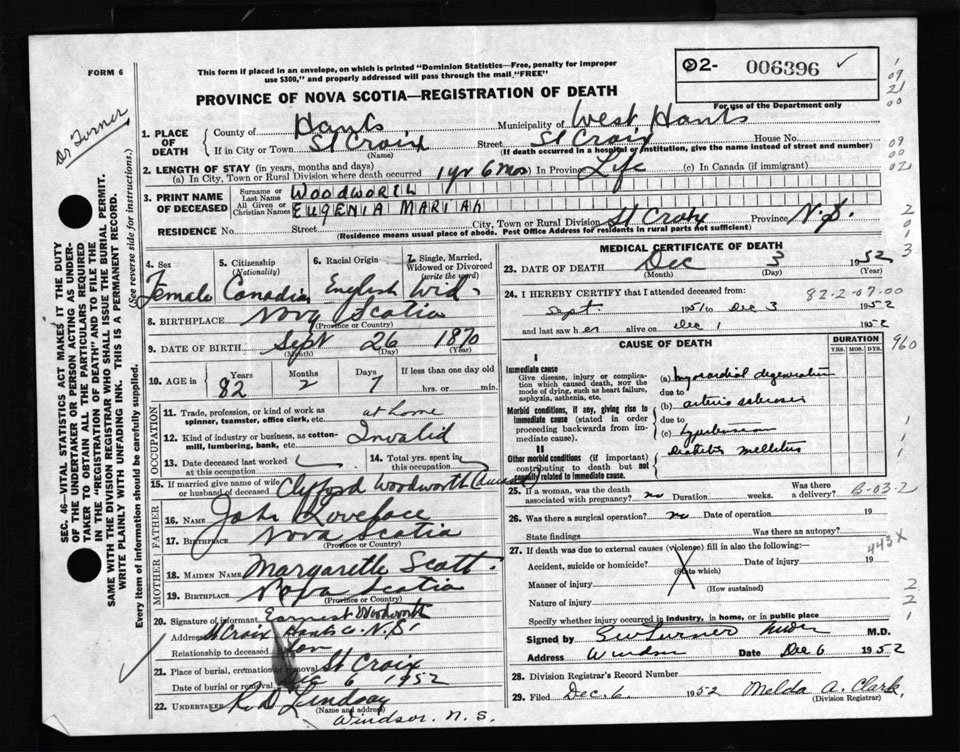 FORM 6
This form if placed in an envelope, on which is printed "Dominion Statistics—Free, penalty for improper
use $300," and properly addressed will pass through the mail "FREE"
②2- 006396 ✓
For use of the Department only
PROVINCE OF NOVA SCOTIA—REGISTRATION OF DEATH
Dr Turner
SEC. 46—VITAL STATISTICS ACT MAKES IT THE DUTY
OF THE UNDERTAKER OR PERSON ACTING AS UNDER-
TAKER TO OBTAIN ALL THE PARTICULARS REQUIRED
IN THE "REGISTRATION OF DEATH" AND TO FILE THE
SAME WITH THE DIVISION REGISTRAR WHO SHALL ISSUE THE BURIAL PERMIT.
WRITE PLAINLY WITH UNFADING INK. THIS IS A PERMANENT RECORD.
(See reverse side for instructions.)
Every item of information should be carefully supplied.
1. PLACE OF DEATH County of Hants Municipality of West Hants
If in City or Town St Croix (Name) Street St Croix House No.
(If death occurred in a hospital or institution, give the name instead of street and number)
2. LENGTH OF STAY (in years, months and days)
(a) In City, Town or Rural Division where death occurred 1 yr 6 mos In Province Life (c) In Canada (if immigrant)
3. PRINT NAME OF DECEASED Surname or Last Name WOODWORTH
All Given or Christian Names EUGENIA MARIAH
RESIDENCE No. Street City, Town or Rural Division St Croix Province N.S.
(Residence means usual place of abode. Post Office Address for residents in rural parts not sufficient)
4. Sex 5. Citizenship (Nationality) 6. Racial Origin 7. Single, Married, Widowed or Divorced (write the word)
Female Canadian English Wid.
8. BIRTHPLACE Nova Scotia
(Province or Country)
9. DATE OF BIRTH Sept 26 1870
(Month) (Day) (Year)
10. AGE in Years Months Days If less than one day old
82 2 7 hrs. or min.
OCCUPATION
11. Trade, profession, or kind of work as spinner, teamster, office clerk, etc. at home
12. Kind of industry or business, as cotton-mill, lumbering, bank, etc. Invalid
13. Date deceased last worked at this occupation 14. Total yrs. spent in this occupation
15. If married give name of wife or husband of deceased Clyfford Woodworth
FATHER
16. NAME John Loveface
17. BIRTHPLACE Nova Scotia
(Province or Country)
MOTHER
18. MAIDEN NAME Margarette Scott.
19. BIRTHPLACE Nova Scotia
(Province or Country)
20. Signature of informant Earnest Woodworth
Address St Croix Hants Co. N.S.
Relationship to deceased Son
21. Place of burial, cremation or removal St Croix
Date of burial or removal Dec 6 1952
22. UNDERTAKER R D Lindsay
(Name and address)
Windsor. N. S.
MEDICAL CERTIFICATE OF DEATH
23. DATE OF DEATH Dec 3 1952
(Month) (Day) (Year)
24. I HEREBY CERTIFY that I attended deceased from: 82-2-07-00
Sept. 1951 to Dec 3 1952
and last saw her alive on Dec 1 1952
CAUSE OF DEATH
DURATION
YRS. MOS. DYS.
960
I
Immediate cause
Give disease, injury or complication which caused death, not the mode of dying, such as heart failure, asphyxia, asthenia, etc.
(a) myocardial degeneration
due to
Morbid conditions, if any, giving rise to immediate cause (stated in order proceeding backwards from immediate cause).
(b) arterio sclerosis
due to
(c)
II
Other morbid conditions (if important) contributing to death but not causally related to immediate cause.
Diabetes mellitus
25. If a woman, was the death associated with pregnancy? no Duration weeks. Was there a delivery? B-03-2
26. Was there a surgical operation? no Date of operation 19
State findings Was there an autopsy?
443X
27. If death was due to external causes (violence) fill in also the following:—
Accident, suicide or homicide? (State which) Date of injury 19
Manner of injury (How sustained)
Nature of injury
Specify whether injury occurred in industry, in home, or in public place
Signed by EW Turner M.D.
Address Windsor Date Dec 6 1952
28. Division Registrar's Record Number
29. Filed Dec. 6 1952 Melda A. Clark.
(Division Registrar)